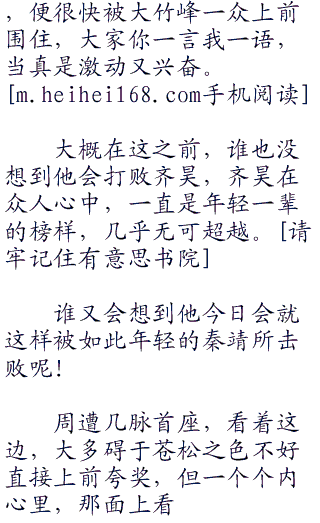 ，便很快被大竹峰一众上前
围住，大家你一言我一语，
当真是激动又兴奋。
[m.heihei168.com手机阅读]
大概在这之前，谁也没
想到他会打败齐昊，齐昊在
众人心中，一直是年轻一辈
的榜样，几乎无可超越。[请
牢记住有意思书院]
谁又会想到他今日会就
这样被如此年轻的秦靖所击
败呢！
周遭几脉首座，看着这
边，大多碍于苍松之色不好
直接上前夸奖，但一个个内
心里，那面上看